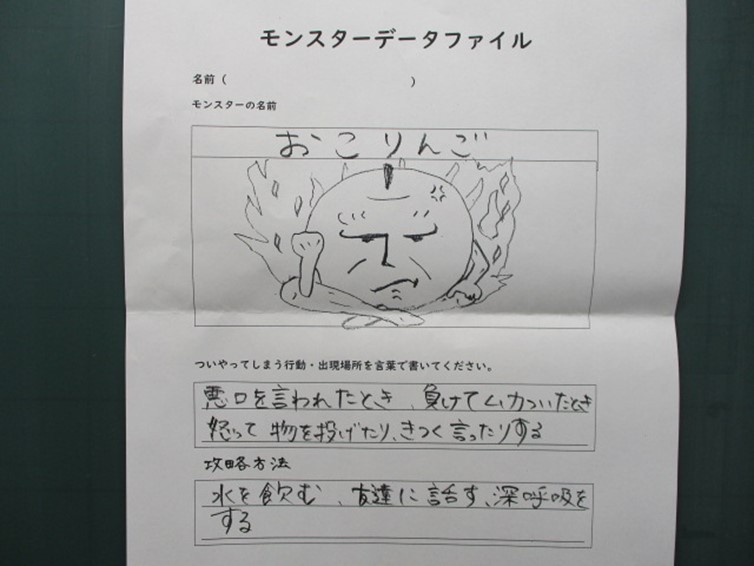 モンスターデータファイル
名前（　　　　　　　　　　）
モンスターの名前
おこりんご
ついやってしまう行動・出現場所を言葉で書いてください。
悪口を言われたとき、負けてムカついたとき
怒って物を投げたり、きつく言ったりする
攻略方法
水を飲む、友達に話す、深呼吸を
する